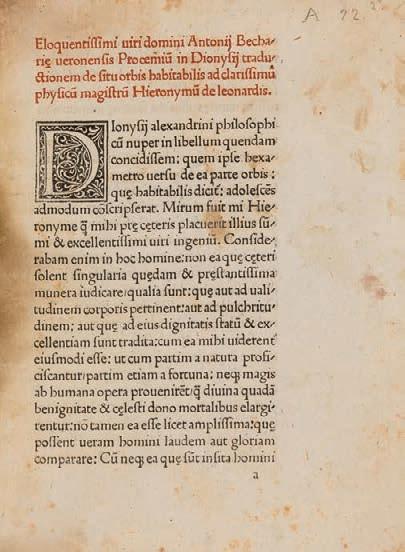 A 22
Eloquentissimi uiri domini Antonij Becha-
rię ueronensis Procemiũ in Dionysij tradu-
ctionem de situ orbis habitabilis ad clarissimũ
physicũ magistrũ Hieronymũ de leonardis.
DIonysij alexandrini philosophi
cũ nuper in libellum quendam
concidissem: quem ipse hexa-
metro uersu de ea parte orbis:
quę habitabilis dicit̃: adolescẽs
admodum cõscripserat. Mirum fuit mi Hie-
ronyme q̃ mihi pre ceteris placuerit illius sũ-
mi & excellentissimi uiri ingeniũ. Conside-
rabam enim in hoc homine: non ea que ceteri
solent singularia quędam & pręstantissima
munera iudicare/qualia sunt: quę aut ad uali-
tudinem corporis pertinent: aut ad pulchritu-
dinem; aut quę ad eius dignitatis statũ & ex-
cellentiam sunt tradita: cum ea mihi uiderent̃
eiusmodi esse: ut cum partim a natura profi-
ciscantur/partim etiam a fortuna; neq; magis
ab humana opera prouenirẽt/q̃ diuina quadã
benignitate & cęlesti dono mortalibus elargi-
rentur: nõ tamen ea esse licet amplissima: quę
possent ueram homini laudem aut gloriam
comparare: Cũ neq; ea quę sũt insita homini
a